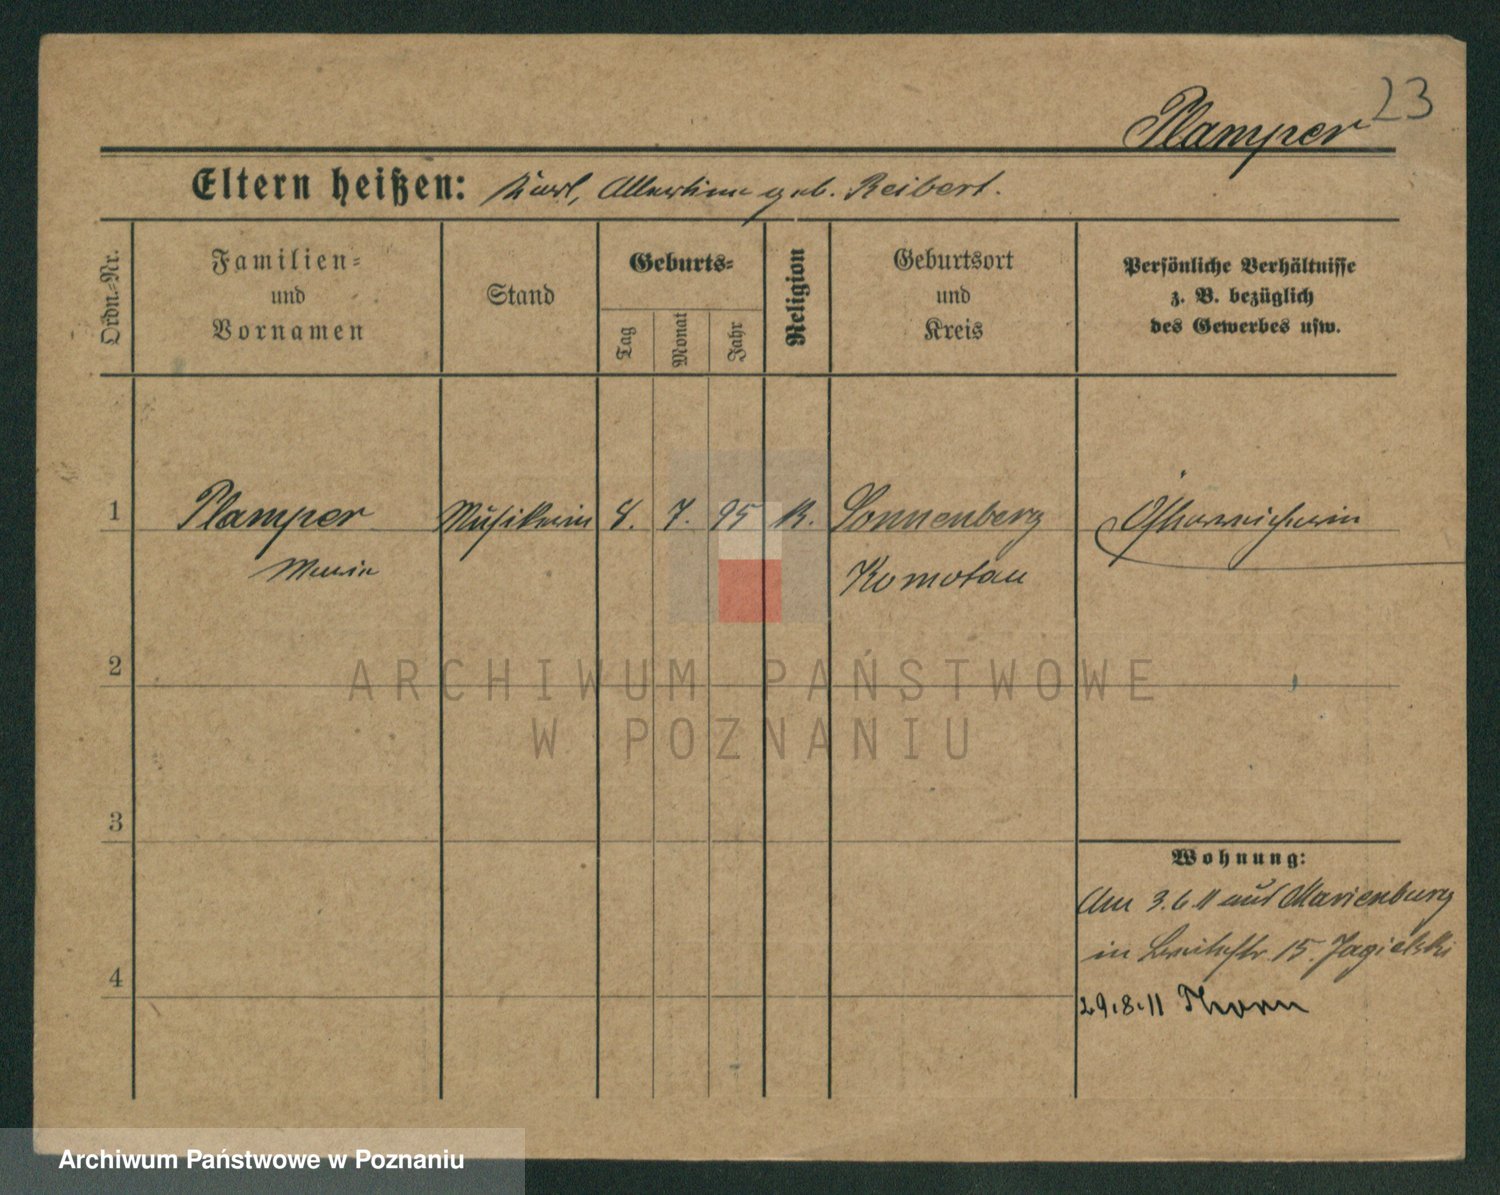 23
Plamper
Eltern heißen: Karl, Albertine geb. Reibert.
Ordn.-Nr.
Familien-
und
Vornamen
Stand
Geburts-
Tag
Monat
Jahr
Religion
Geburtsort
und
Kreis
Persönliche Verhältnisse
z. B. bezüglich
des Gewerbes usw.
1 Plamper Musikerin 8. 7. 95 K. Sonnenberg Österreicherin
Marie Komotau
2
ARCHIWUM PAŃSTWOWE
W POZNANIU
3
Wohnung:
Am 3.6.11 aus Marienburg
in Breitestr. 15. Jagielski
4
29.8.11 Thorn
Archiwum Państwowe w Poznaniu